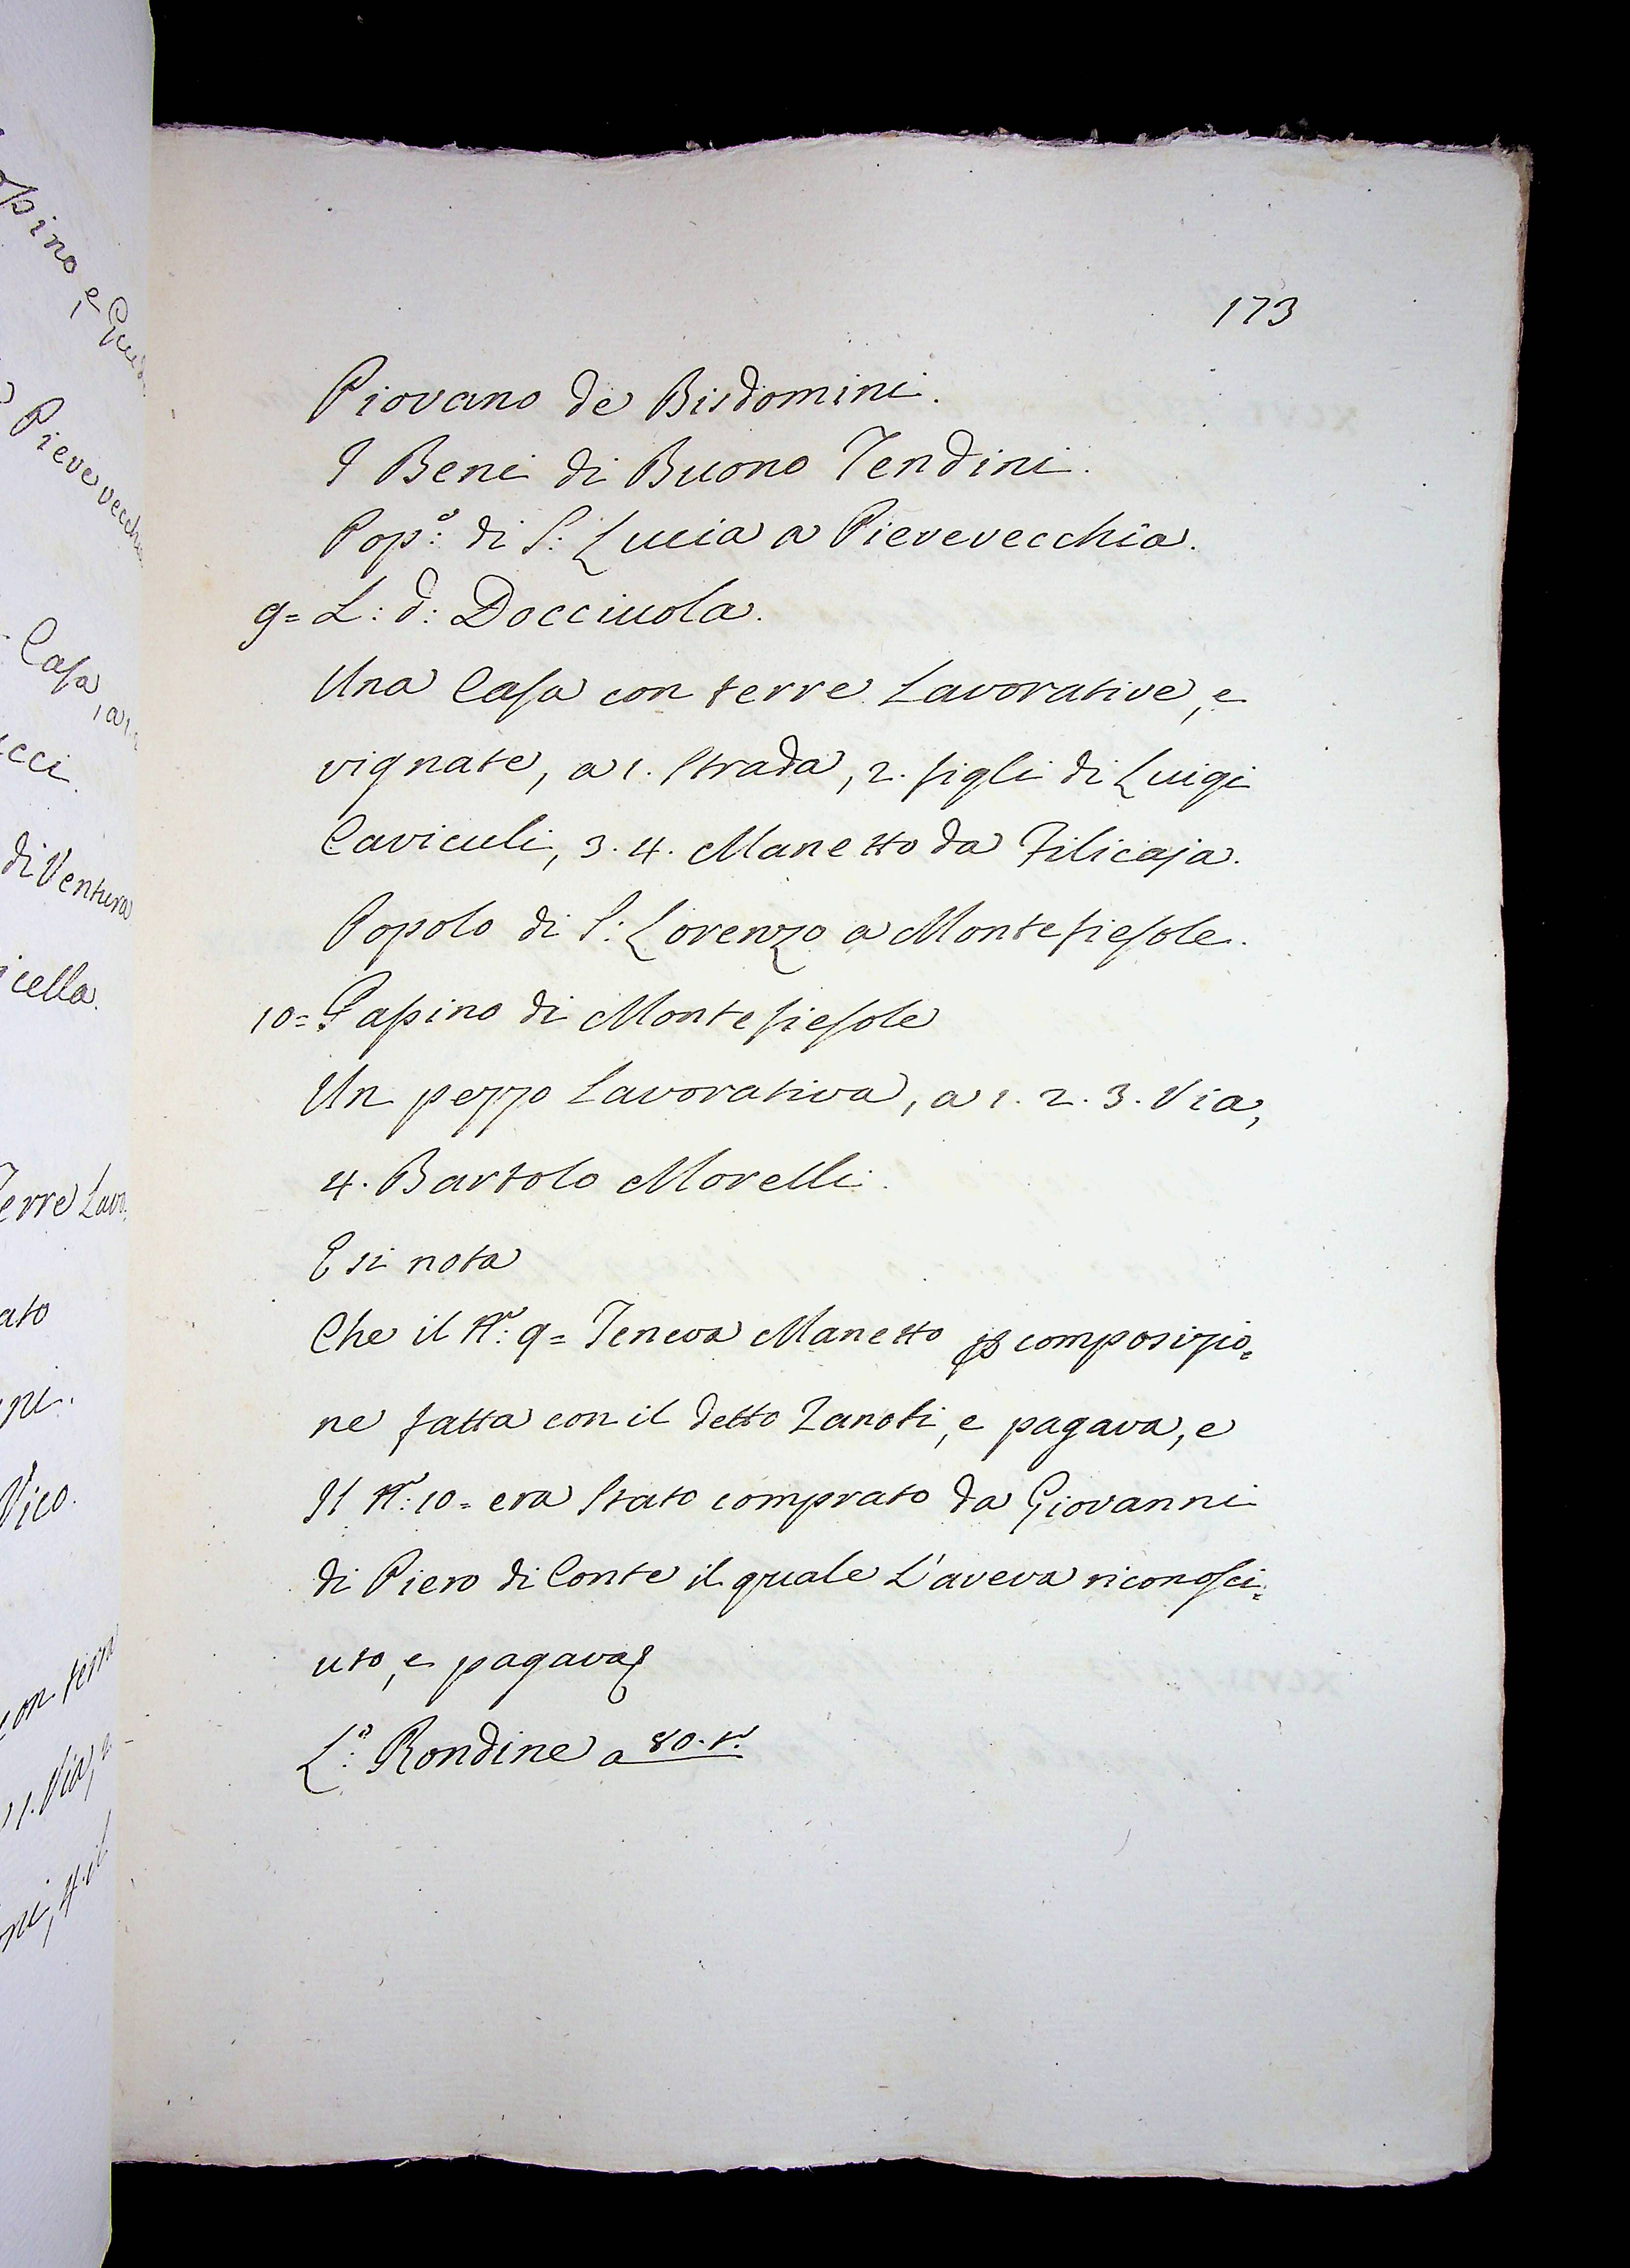 173
Piovano de Bisdomini.
I Beni di Buono Tendini.
Pop:º di S: Lucia a Pievevecchia.
9= L: d: Docciuola.
Una Casa con terre Lavorative, e
vignate, a 1. Strada, 2. figli di Luigi
Caviculi, 3. 4. Manetto da Filicaja.
Popolo di S: Lorenzo a Montefiesole.
10= Papino di Montefiesole
Un pezzo Lavorativa, a 1. 2. 3. Via,
4. Bartolo Morelli.
E si nota
Che il Nº: 9= Teneva Manetto p composizio=
ne fatta con il detto Zanoti, e pagava, e
Il Nº: 10= era Stato comprato da Giovanni
di Piero di Conte il quale L'aveva riconosci=
uto, e pagava
Lº: Rondine a 80. tº.
pino, e
Pievevecchia
Casa, a 1.
cci.
di Ventura
icella.
erre Lavo
ato
ni.
Vico.
con terra
1. Via,
ni, 4. il